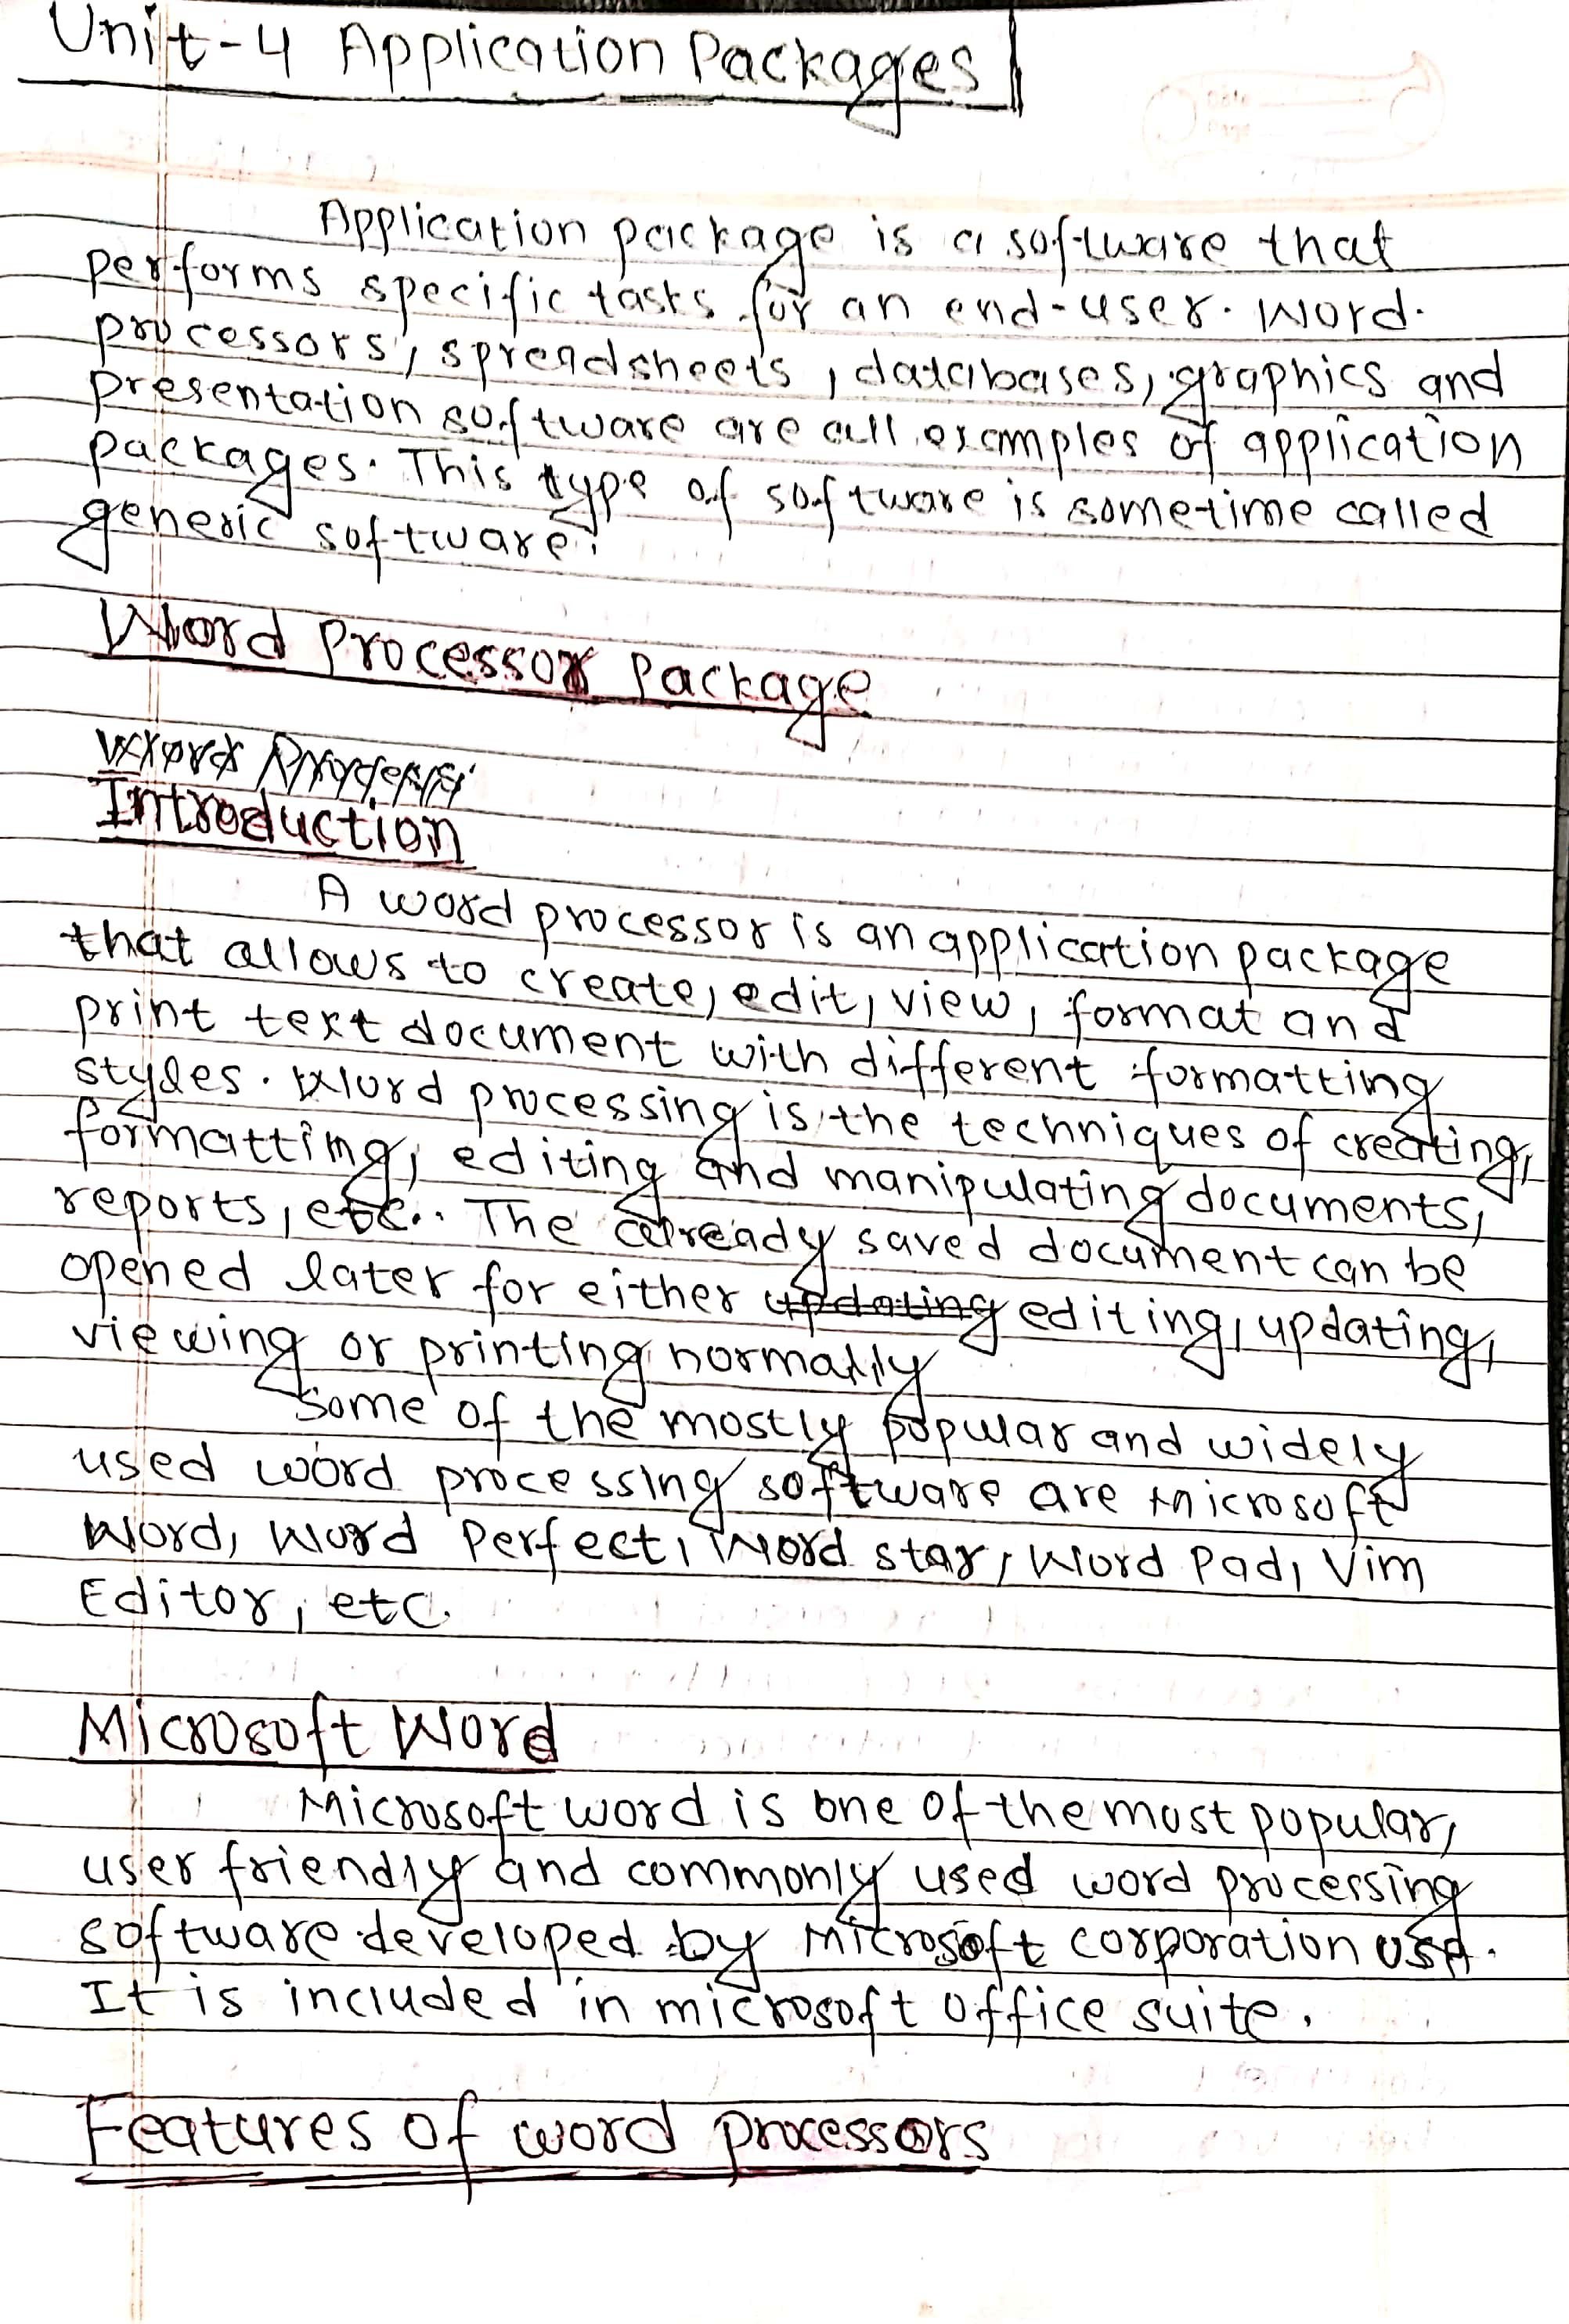 Unit-4 Application Packages
Application package is a software that
performs specific tasks for an end-user. Word.
processors, spreadsheets, databases, graphics and
presentation software are all examples of application
packages. This type of software is sometime called
generic software.
Word Processor Package
Introduction
A word processor is an application package
that allows to create, edit, view, format and
print text document with different formatting
styles. Word processing is the techniques of creating,
formatting, editing and manipulating documents,
reports, etc.. The already saved document can be
opened later for either updating editing, updating,
viewing or printing normally
Some of the mostly popular and widely
used word processing software are Microsoft
Word, Word Perfect, Word star, Word Pad, Vim
Editor, etc.
Microsoft Word
Microsoft word is one of the most popular,
user friendly and commonly used word processing
software developed by Microsoft corporation USA.
It is included in microsoft office suite.
Features of word processors